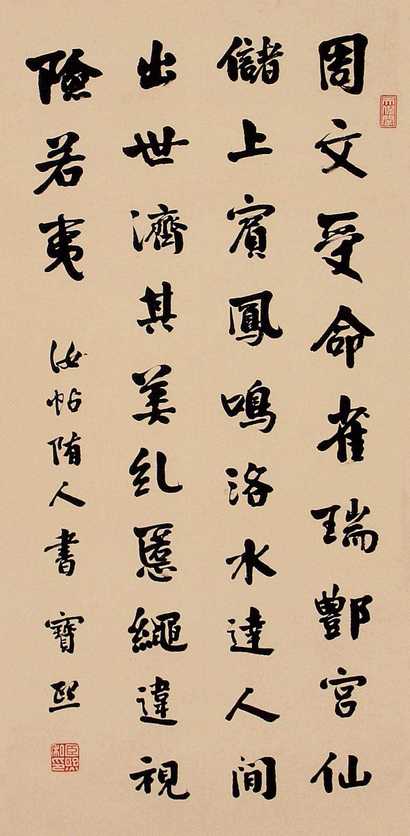 周文受命雀瑞酆宮仙
儲上賓鳳鳴洛水達人間
出世濟其美糺慝繩違視
險若夷
汝帖隋人書 寶熙